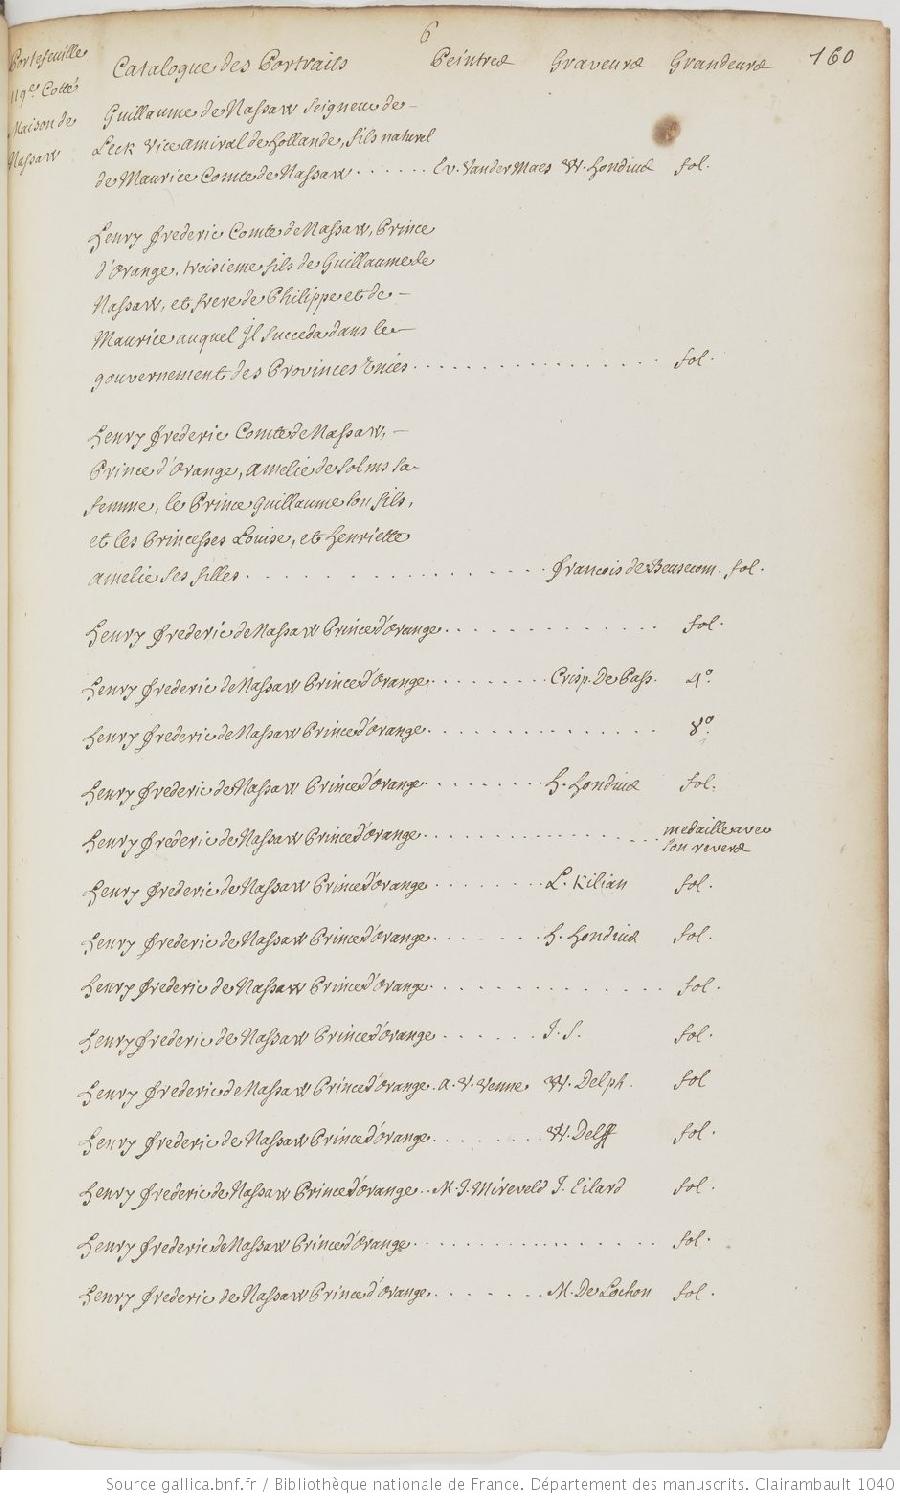 6
Portefeuille
119e Cotté
Maison de
Nassaw
Catalogue des Portraits Peintres Graveurs Grandeurs 160
Guillaume de Nassaw Seigneur de
Leck Vice amiral de Hollande, fils naturel
de Maurice Comte de Nassaw . . . . . . Ev. Vander Maes W. Hondius fol.
Henry frederic Comte de Nassaw, Prince
d'Orange, troisieme fils de Guillaume de
Nassaw, et frere de Philippe et de
Maurice auquel Il succeda dans le
gouvernement des Provinces Unies . . . . . . fol.
Henry frederic Comte de Nassaw,
Prince d'Orange, Amelie de Solms sa
femme, le Prince Guillaume son fils,
et les Princesses Louise, et henriette
amelie ses filles . . . . . . francois de Beusecom. fol.
Henry frederic de Nassaw Prince d'Orange . . . . . . fol.
Henry frederic de Nassaw Prince d'Orange . . . . . . Crisp. De Pass. 4°.
Henry frederic de Nassaw Prince d'Orange . . . . . . 8°.
Henry frederic de Nassaw Prince d'Orange . . . . . . h. hondius fol.
Henry frederic de Nassaw Prince d'Orange . . . . . . medaille avec
son revers
Henry frederic de Nassaw Prince d'Orange . . . . . . L. Kilian fol.
Henry frederic de Nassaw Prince d'Orange . . . . . . h. hondius fol.
Henry frederic de Nassaw Prince d'Orange . . . . . . fol.
Henry frederic de Nassaw Prince d'Orange . . . . . . J. S. fol.
Henry frederic de Nassaw Prince d'Orange . A. V. Venne W. Delph. fol
Henry frederic de Nassaw Prince d'Orange . . . . . . W. Delff fol.
Henry frederic de Nassaw Prince d'Orange . . M. J. Mireveld J. Eilard fol.
Henry frederic de Nassaw Prince d'Orange . . . . . . fol.
Henry frederic de Nassaw Prince d'Orange . . . . . . M. De Lochon fol.
Source gallica.bnf.fr / Bibliothèque nationale de France. Département des manuscrits. Clairambault 1040